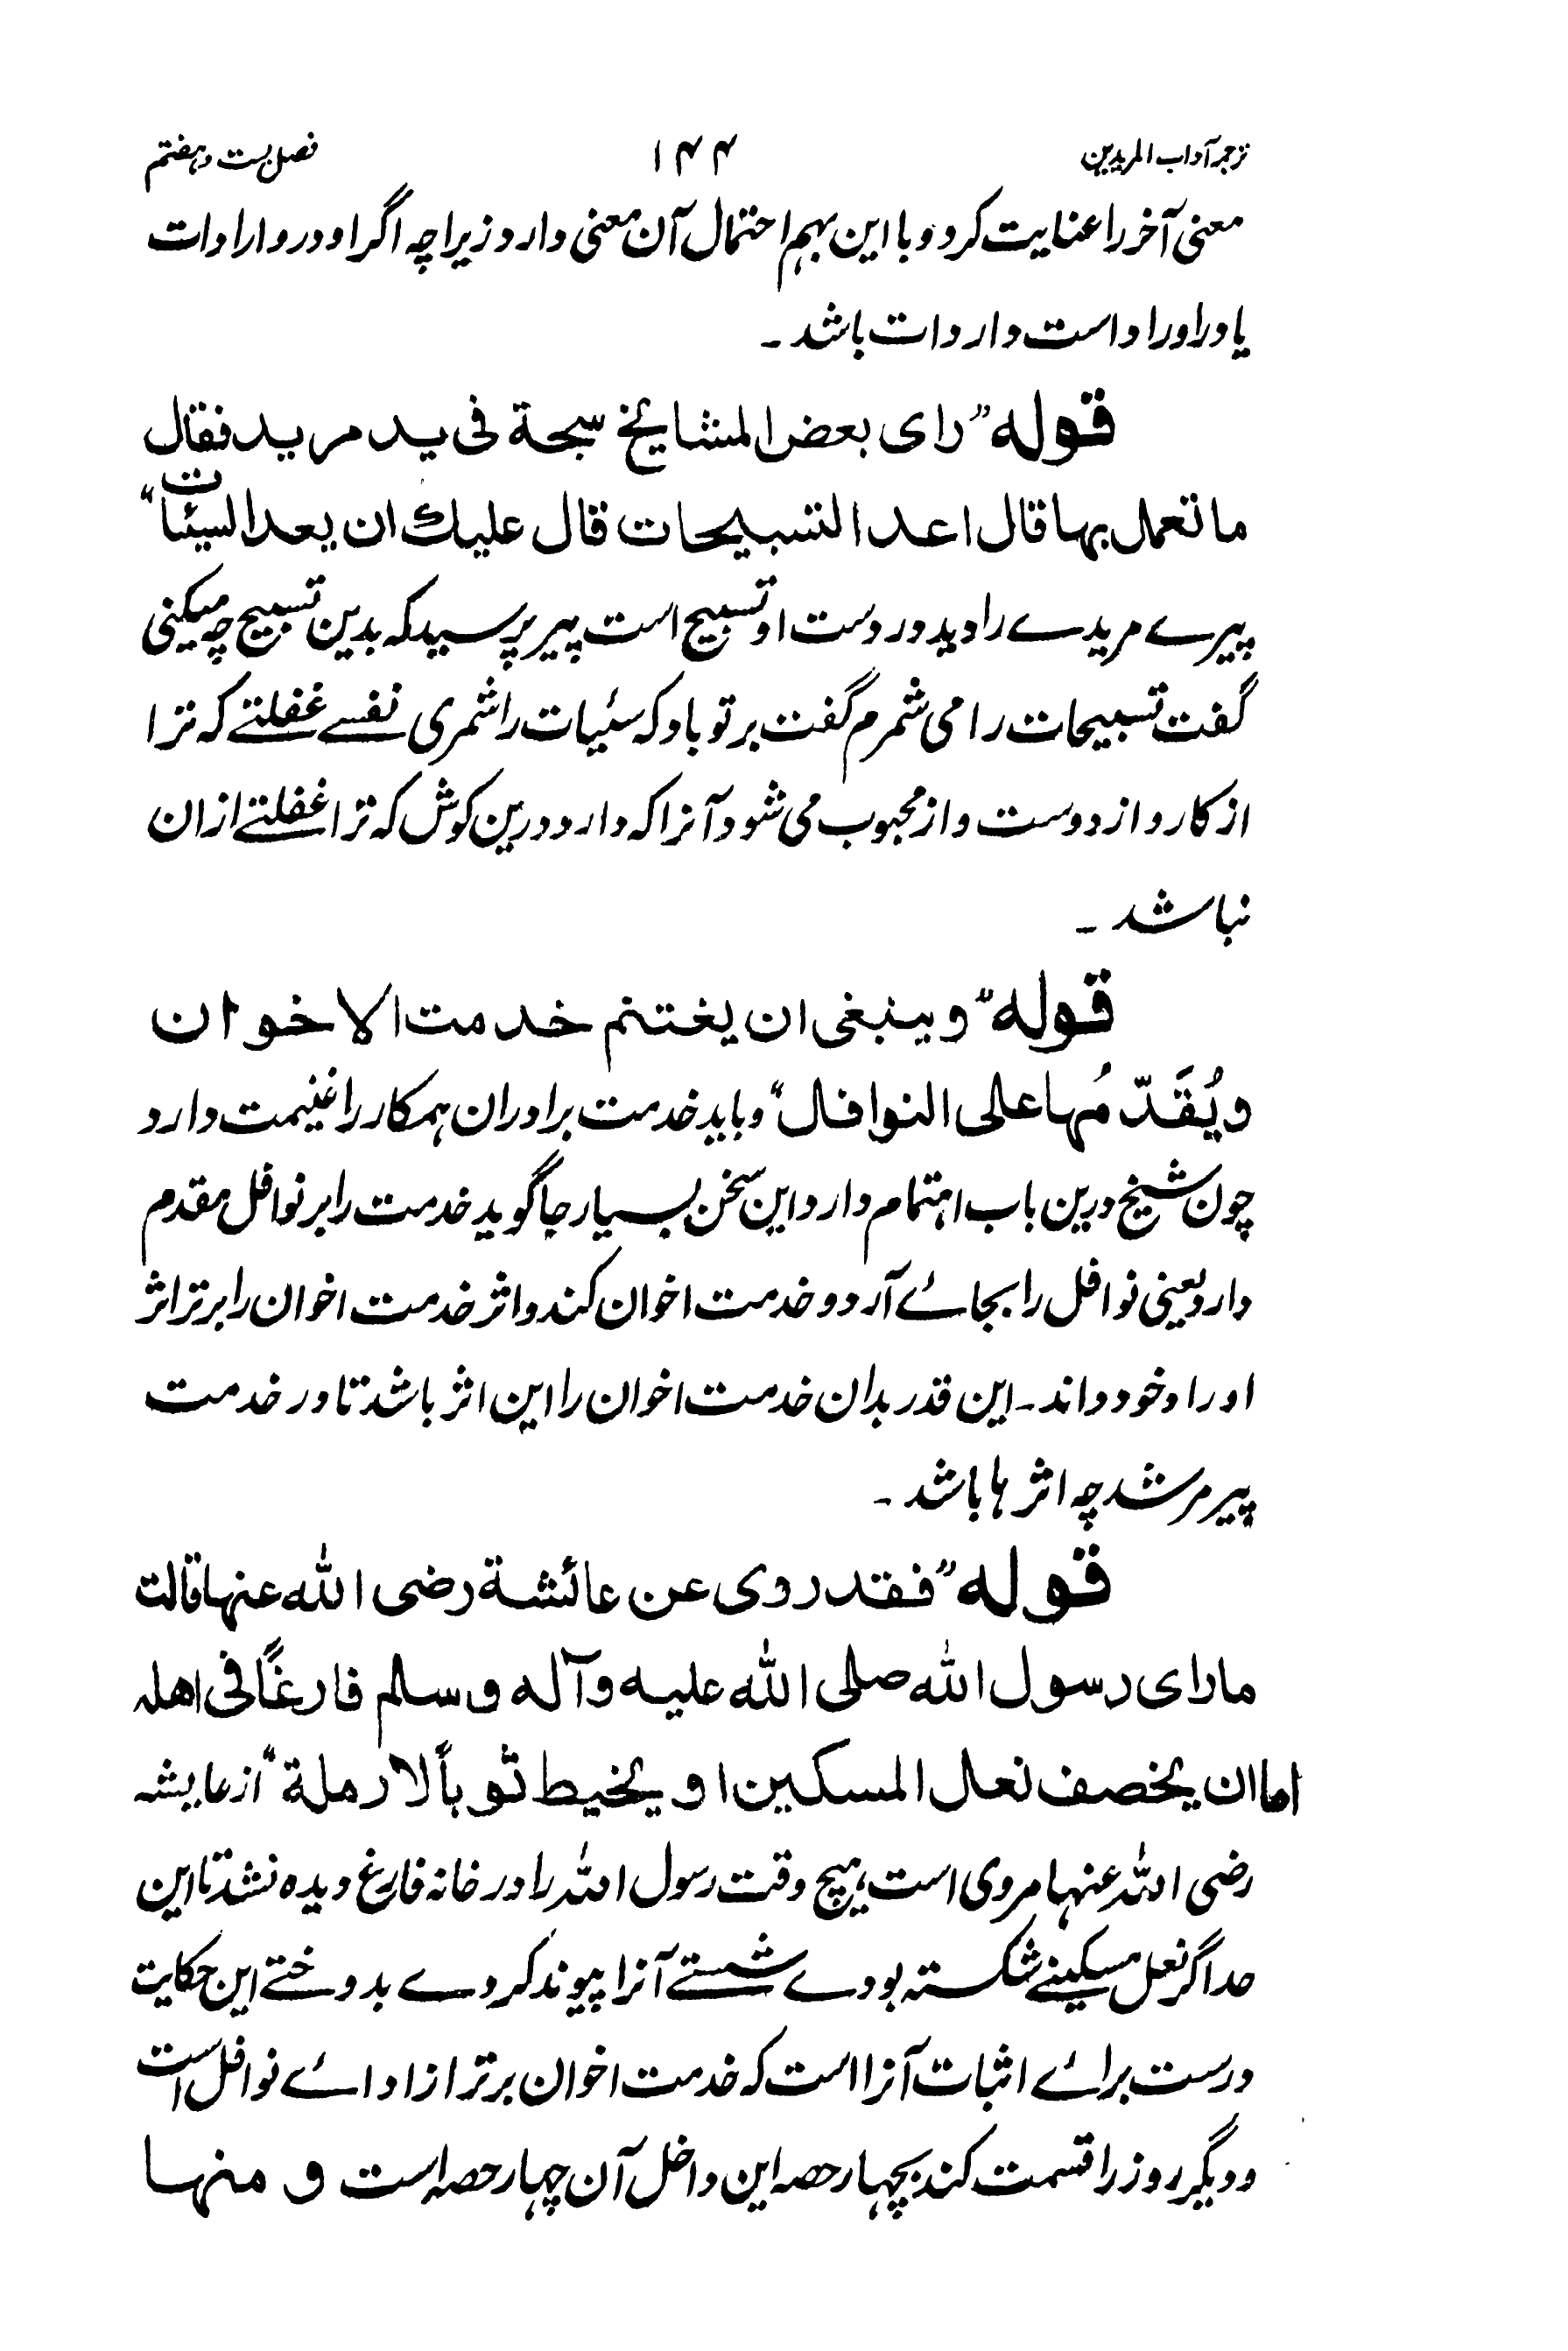 ترجمہ آداب المریدین ۱۴۴ فصل بست و ہفتم
معنی آخر را عنایت کرد و با این ہم احتمال آن معنی دارد زیراچہ اگر او در و ارادات
یا در اوراد است واردات باشد ۔
قوله "رای بعض المشایخ سبحة فی ید مرید فقال
ما تعمل بها قال اعد التسبیحات قال علیك ان یعد السیئات"
پیرے مریدے را دید در دست او تسبیح است پیر پرسید کہ بدین تسبیح چہ میکنی
گفت تسبیحات را می شمرم گفت بر تو باد کہ سئیات را شمری نفسے غفلتے کہ ترا
از کار و از دوست و از محبوب می شود آنرا کہ دارد درین کوش کہ ترا غفلتے ازان
نباشد ۔
قوله "و ینبغی ان یغتنم خدمت الاخوان
و یُقَدّمُها علی النوافل" و باید خدمت برادران ہمکار را غنیمت دارد
چون شیخ درین باب اہتمام دارد این سخن بسیار جا گوید خدمت را بر نوافل مقدم
دارد یعنی نوافل را بجائے آرد و خدمت اخوان کند و اثر خدمت اخوان را برتر اثر
اوراد خود داند۔ این قدر بدان خدمت اخوان را این اثر باشد تا در خدمت
پیر مرشد چہ اثر ہا باشد ۔
قوله "فقد روی عن عائشة رضی الله عنها قالت
ما رای رسول الله صلی الله علیه وآله وسلم فارغاً فی اهله
اما ان یخصف نعال المسکین او یخیط ثوباً لارملة" از عایشہ
رضی اللہ عنہا مروی است، ہیچ وقت رسول اللہ را در خانہ فارغ دیدہ نشد تا این
حد اگر نعل مسکینے شکستہ بودے شستے آنرا پیوند کردے بدوختے این حکایت
درست برائے اثبات آنرا است کہ خدمت اخوان برتر از ادائے نوافل است
و دیگر روز را قسمت کند بچہار حصہ این داخل آن چہار حصہ است و منها